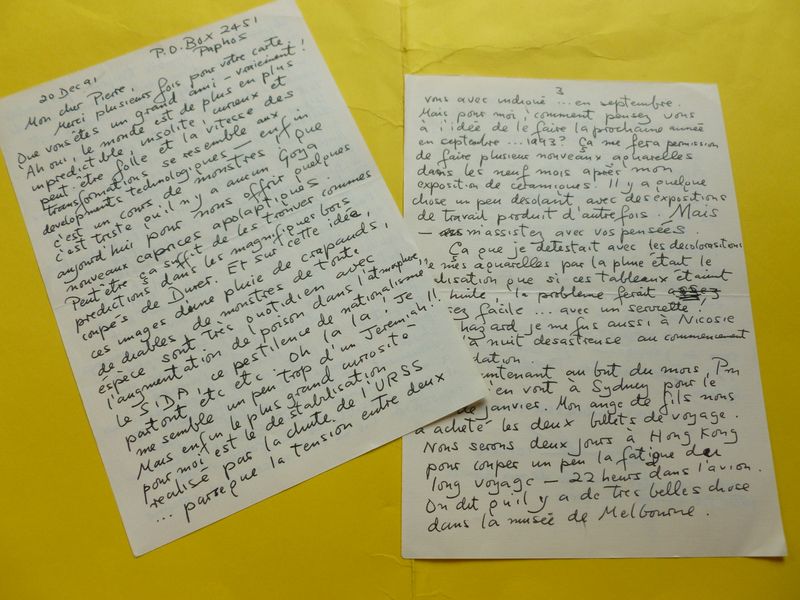 P.O. Box 2451
20 Dec 91 Paphos
Mon cher Pierre,
Merci plusieurs fois pour votre carte.
Que vous êtes un grand ami - vraiement!
Ah oui, le monde est de plus en plus
impredictible, insolite, curieux et
peut-être folle et la vitesse des
transformations se resemble aux
developments technologiques — enfin
c'est un cours de monstres! que
c'est triste qu'il n'y a aucun Goya
aujourd'hui pour nous offrir quelques
nouveaux caprices apolaptiques.
Peut être ça suffit de les trouver commes
predictions dans les magnifiques bois
coupés de Durer. Et sur cette idée,
ces images d'une pluie de crapauds,
de diables, de monstres de toute
espèce sont tres quotidien avec
l'augmentation de poison dans l'atmosphere,
le SIDA, ce pestilence de nationalisme
partout etc etc. Oh la la! Je
me semble un peu trop d'un Jeremiah!
Mais enfin le plus grand curiosité
pour moi est le destabilisation
realisé par la chute de l'URSS
... parseque la tension entre deux
3
vous avec indiqué ... en septembre.
Mais pour moi, comment pensez vous
à l'idée de le faire la prochaine année
en septembre ... 1993? Ça me fera permission
de faire plusieur nouveaux aquarelles
dans les neuf mois après mon
exposition de céramiques. Il y a quelque
chose un peu desolant avec des expositions
de travail produit d'autrefois. Mais
— m'assistez avec vos pensées.
Ça que je detestait avec les decolorations
mes aquarelles par la pluie était le
lisation que si ces tableaux étaint
huile, la problème ferait
sez facile ... avec un serviette!
hazard je me fus aussi à Nicosie
a nuit desastreuse au commencement
dation.
ntenant au but du mois, Pm
en vont à Sydney pour le
de janvier. Mon ange de fils nous
a acheté les deux billets de voyage.
Nous serons deux jours à Hong Kong
pour couper un peu la fatigue du
long voyage — 22 heurs dans l'avion.
On dit qu'il y a de tres belles chose
dans la musée de Melbourne.